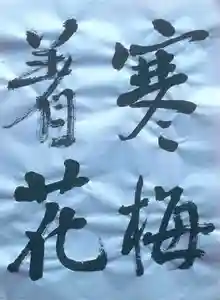 寒梅
着花